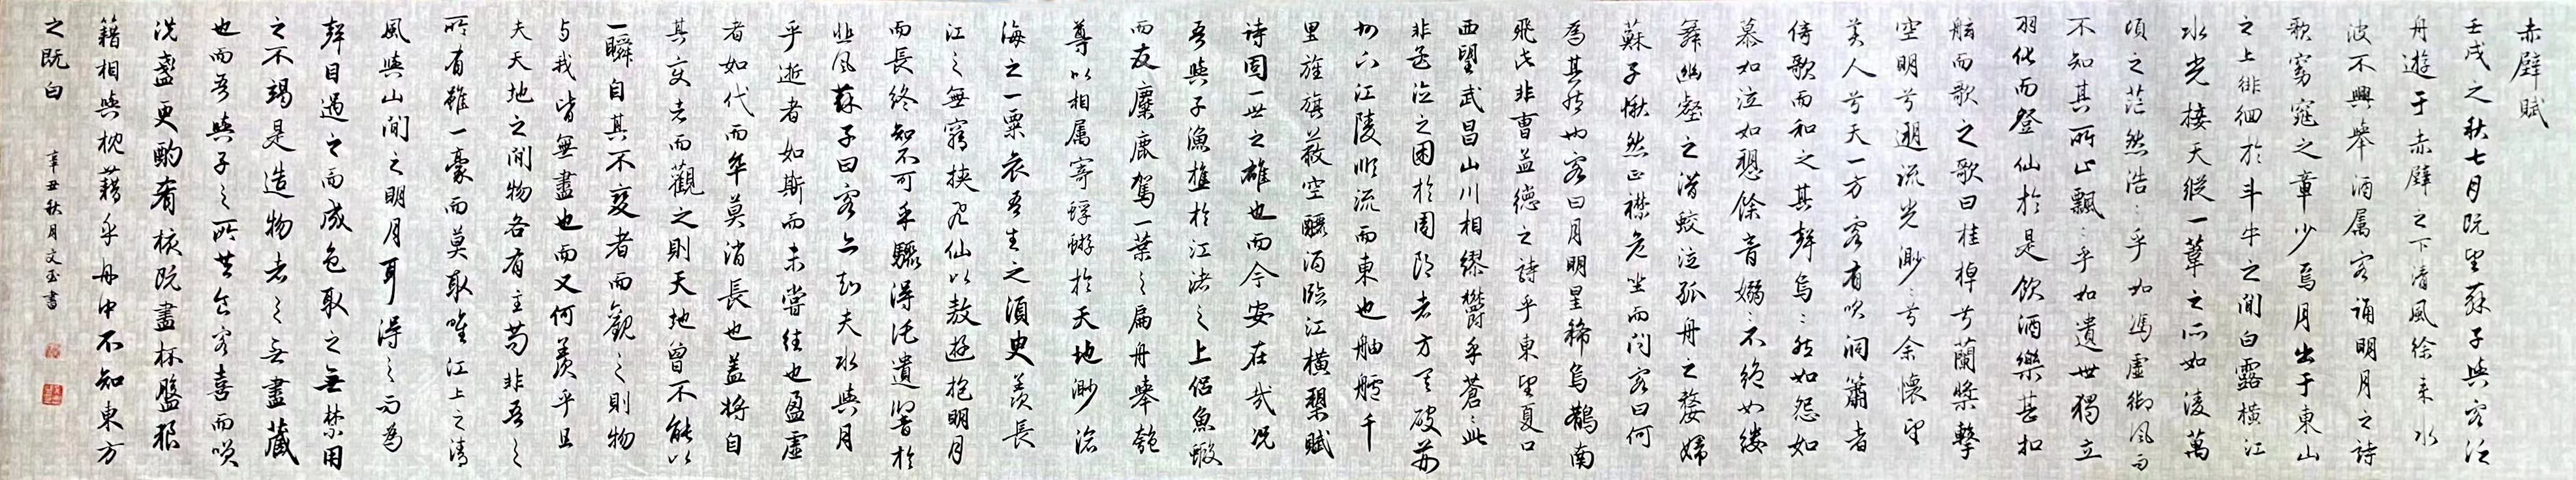 赤壁賦
壬戌之秋七月既望蘇子與客泛
舟遊于赤壁之下清風徐来水
波不興舉酒属客誦明月之詩
歌窈窕之章少焉月出于東山
之上徘徊於斗牛之間白露橫江
水光接天縱一葦之所如淩萬
頃之茫然浩〻乎如馮虛御風而
不知其所止飄〻乎如遺世獨立
羽化而登仙於是飲酒樂甚扣
舷而歌之歌曰桂棹兮蘭槳擊
空明兮遡流光渺〻兮余懷望
美人兮天一方客有吹洞簫者
倚歌而和之其聲烏〻然如怨如
慕如泣如愬餘音嫋〻不絕如縷
舞幽壑之潛蛟泣孤舟之嫠婦
蘇子愀然正襟危坐而问客曰何
為其然也客曰月明星稀烏鵲南
飛此非曹孟德之詩乎東望夏口
西望武昌山川相繆欝乎蒼〻此
非孟德之困於周郎者方其破荊
州下江陵順流而東也舳艫千
里旌旗蔽空釃酒臨江橫槊賦
诗固一世之雄也而今安在哉况
吾與子漁樵於江渚之上侶魚蝦
而友麋鹿駕一葉之扁舟舉匏
尊以相属寄蜉蝣於天地渺滄
海之一粟哀吾生之須臾羨長
江之無窮挾飛仙以遨遊抱明月
而長終知不可乎驟得託遺響於
悲風蘇子曰客亦知夫水與月
乎逝者如斯而未嘗往也盈虛
者如代而卒莫消長也蓋將自
其变者而觀之則天地曾不能以
一瞬自其不变者而觀之則物
与我皆無盡也而又何羨乎且
夫天地之間物各有主苟非吾之
所有雖一豪而莫取唯江上之清
風與山間之明月耳得之而為
聲目遇之而成色取之無禁用
之不竭是造物者之無盡藏
也而吾與子之所共食客喜而笑
洗盞更酌肴核既盡杯盤狼
藉相與枕藉乎舟中不知東方
之既白
辛丑秋月文玉書